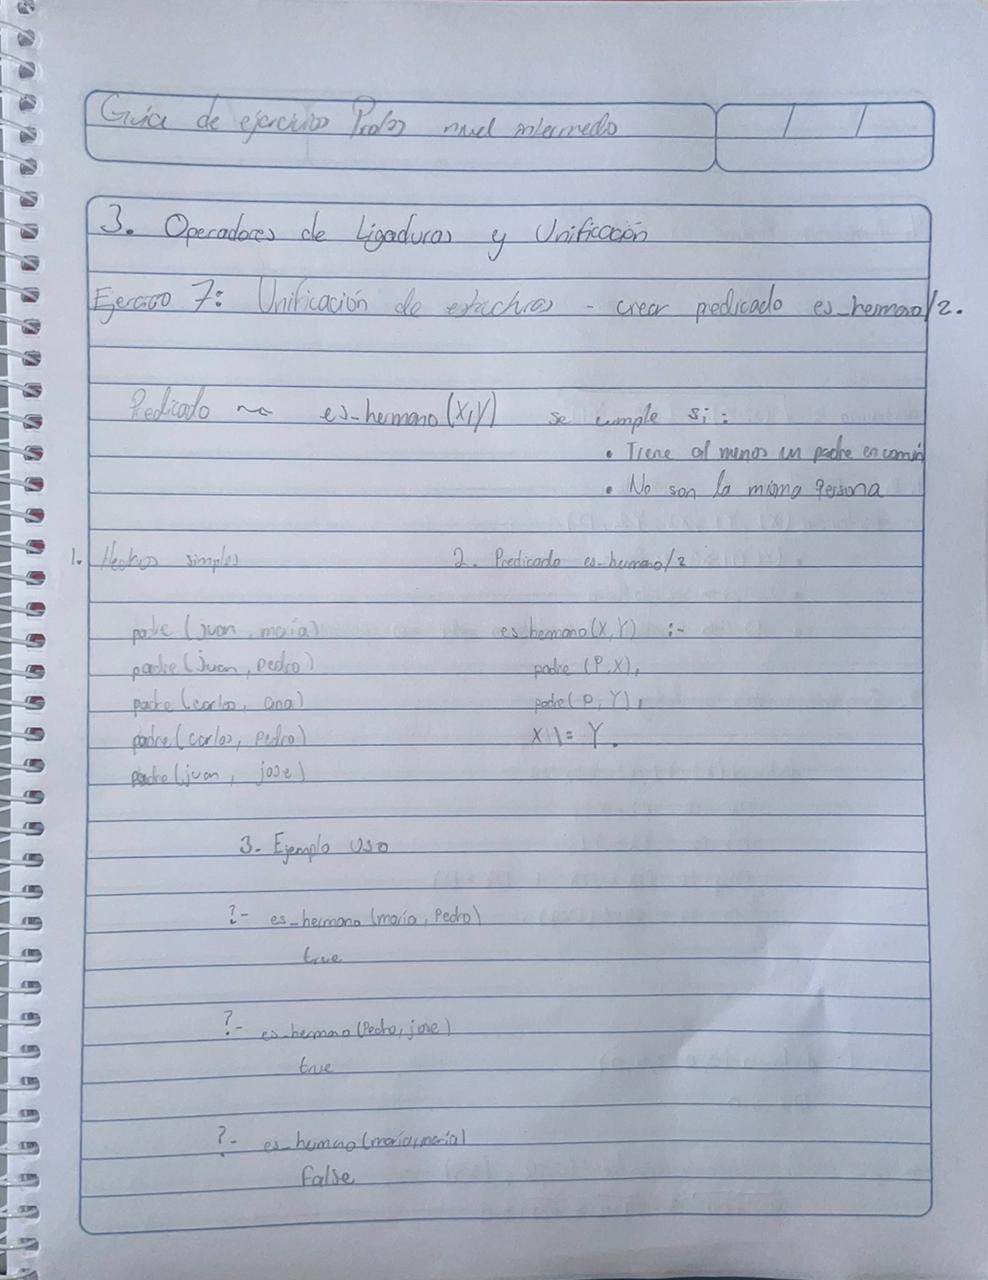 Guía de ejercicios Prolog nivel intermedio
/ /
3. Operadores de Ligaduras y Unificación
Ejercicio 7: Unificación de estructuras - crear predicado es_hermano/2.
Predicado ~ es_hermano(X,Y) se cumple si:
• Tiene al menos un padre en común
• No son la misma Persona
1. Hechos simples
2. Predicado es_hermano/2
padre(juan, maría)
padre(juan, pedro)
padre(carlos, ana)
padre(carlos, pedro)
padre(juan, jose)
es hermano(X,Y) :-
padre (P,X),
padre(P, Y),
X \= Y.
3- Ejemplo USO
?- es_hermano(maría, Pedro)
true
?- es_hermano(Pedro, jose)
true
?- es_hermano(maría, maría)
False